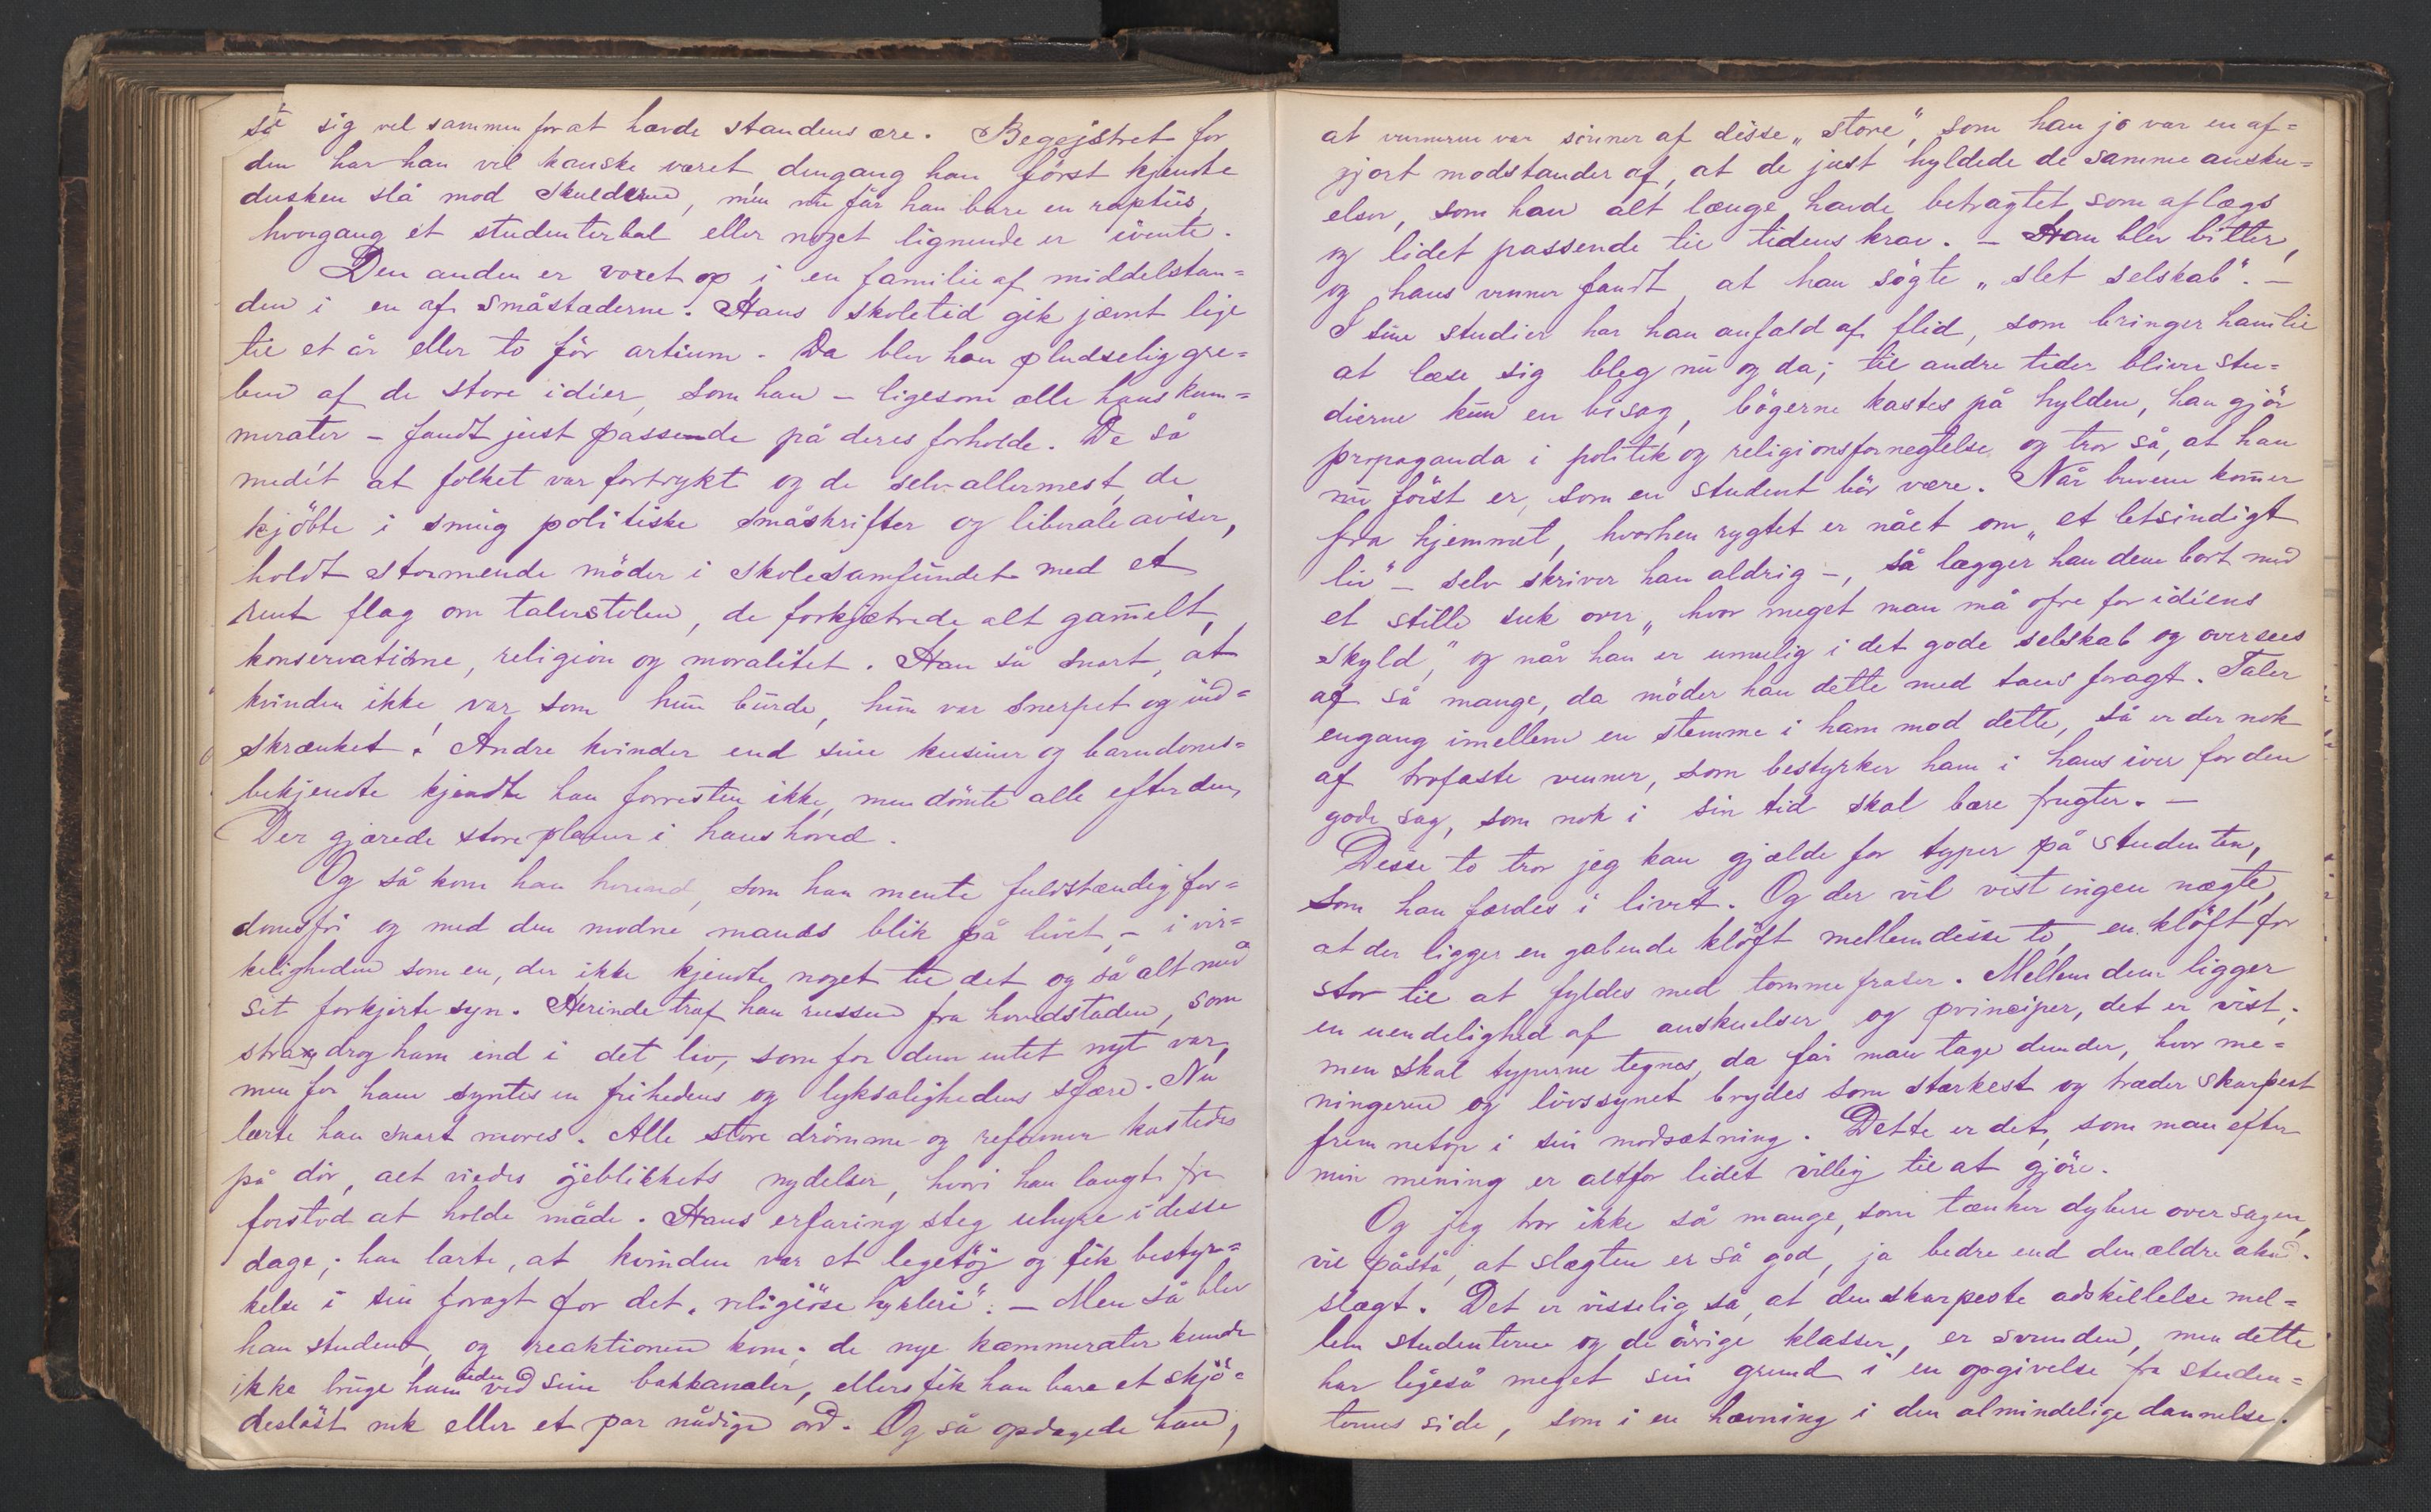 sig vel sammen for at hævde standens ære. Begejstret for
den har han vel kanske været, dengang han först kjendte
dusken slå mod skulderne, men nu får han bare en raptus,
hvergang et studenterbal eller noget lignende er ivente.
Den anden er voxet op i en familie af middelstan=
den i en af småstæderne. Hans skoletid gik jævnt lige
til et år eller to för artium. Da blev han pludselig gre=
ben af de store idéer, som han – ligesom alle hans kam=
merater – fandt just passende på deres forholde. De så
medét at folket var fortrykt og de selv allermest, de
kjöbte i smug politiske småskrifter og liberale aviser,
holdt stormende möder i skolesamfundet med et
rent flag om talerstolen, de forkjætrede alt gam̄elt,
konservatisme, religion og moralitet. Han så snart, at
kvinden ikke var som hun burde, hun var snerpet og ind=
skrænket! Andre kvinder end sine kusiner og barndoms=
bekjendte kjendte han forresten ikke, men dömte alle efter dem,
Der gjærede store planer i hans hoved.
Og så kom han herind, som han mente fuldstændig for=
domsfri og med den modne mands blik på livet, – i vir=
keligheden som en, der ikke kjendte noget til det og så alt med
sit forkjerte syn. Herinde traf han russen fra hovedstaden, som
strax drog ham ind i det liv, som for dem intet nyt var,
men for ham syntes en frihedens og lyksalighedens sfære. Nu
lærte han snart mores. Alle store drömme og reformer kastedes
på dör, alt viedes öjeblikkets nydelser, hvori han langt fra
forstod at holde måde. Hans erfaring steg uhyre i desse
dage; han lærte, at kvinden var et legetöj og fik bestyr=
kelse i sin foragt for det „religiöse hykleri“. – Men så blev
han student, og reaktionen kom; de nye kammerater kunde
ikke bruge ham siden ved sine bakkanaler, ellers fik han bare et skjö=
deslöst nik eller et par nådige ord. Og så opdagede han,
at vennerne var sönner af disse „store“, som han jo var en af=
gjort modstander af, at de just hyldede de samme ansku=
elser, som han alt længe havde betragtet som aflægs
og lidet passende til tidens krav. – Han blev bitter,
og hans venner fandt, at han sögte „slet selskab“. –
I sine studier har han anfald af flid, som bringer ham til
at læse sig bleg nu og da; til andre tider blive stu=
dierne kun en bisag, bögerne kastes på hylden, han gjör
propaganda i politik og religionsfornegtelse og tror så, at han
nu först er, som en student bör være. Når brevene kom̄er
fra hjemmet, hvorhen rygtet er nået om „et letsindigt
liv“ – selv skriver han aldrig –, så lægger han dem bort med
et stille suk over „hvor meget man må ofre for idéens
skyld,“ og når han er umulig i det gode selskab og oversees
af så mange, da möder han dette med taus foragt. Taler
engang imellem en stemme i ham mod dette, så er der nok
af trofaste venner, som bestyrker ham i hans iver for den
gode sag, som nok i sin tid skal bære frugter. –
Disse to tror jeg kan gjælde for typer på studenten,
som han færdes i livet. Og der vil vist ingen nægte,
at der ligger en gabende klöft mellem disse to, en klöft for
stor til at fyldes med tomme fraser. Mellem dem ligger
en uendelighed af anskuelser og principer, det er vist;
men skal typerne tegnes, da får man tage dem der, hvor me=
ningerne og livssynet brydes som stærkest og træder skarpest
frem netop i sin modsætning. Dette er det, som man efter
min mening er altfor lidet villig til at gjöre.
Og jeg tror ikke så mange, som tænker dybere over sagen,
vil påstå, at slægten er så god, ja bedre end den ældre akad.
slægt. Det er visselig så, at den skarpeste adskillelse mel=
lem studenterne og de övrige klasser, er svunden, men dette
har ligeså meget sin grund i en opgivelse fra studen=
ternes side, som i en hævning i den almindelige dannelse.